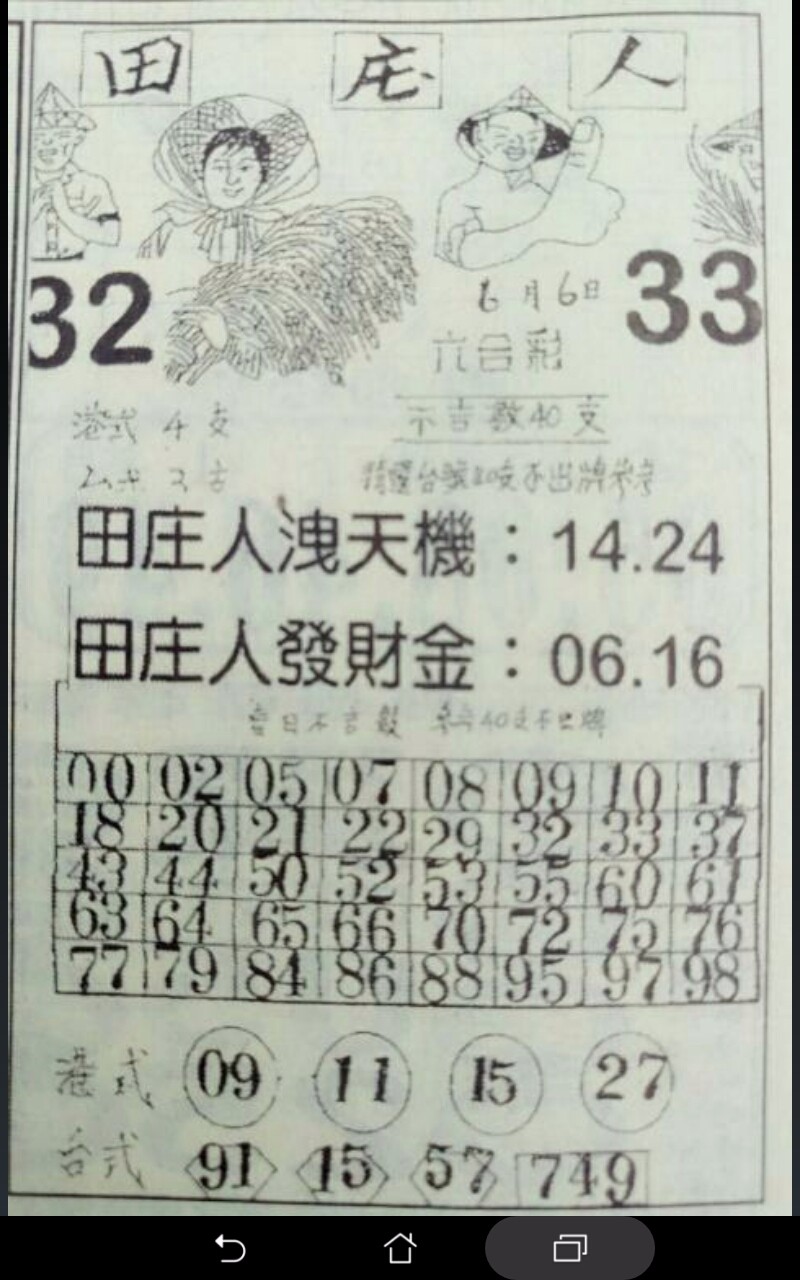 田 庄 人
32
33
6月6日
六合彩
港式 4支
不吉數40支
田庄人洩天機：14.24
田庄人發財金：06.16
00 02 05 07 08 09 10 11
18 20 21 22 29 32 33 37
43 44 50 52 53 55 60 61
63 64 65 66 70 72 75 76
77 79 84 86 88 95 97 98
港式 09 11 15 27
台式 91 15 57 749